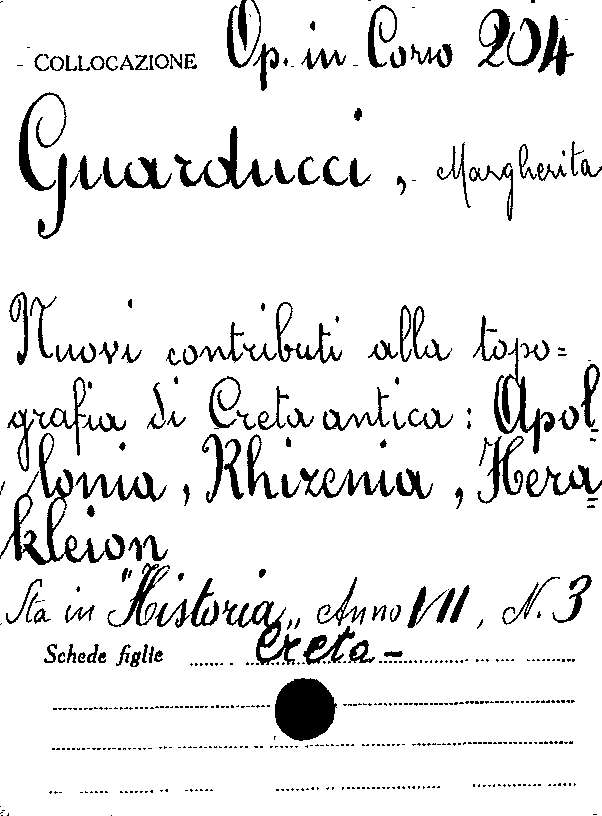 COLLOCAZIONE Op. in Corso 204
Guarducci, Margherita
Nuovi contributi alla topo=
grafia di Creta antica: Apol=
lonia, Rhizenia, Hera=
kleion
Sta in "Historia„ Anno VII, N. 3
Schede figlie Creta -